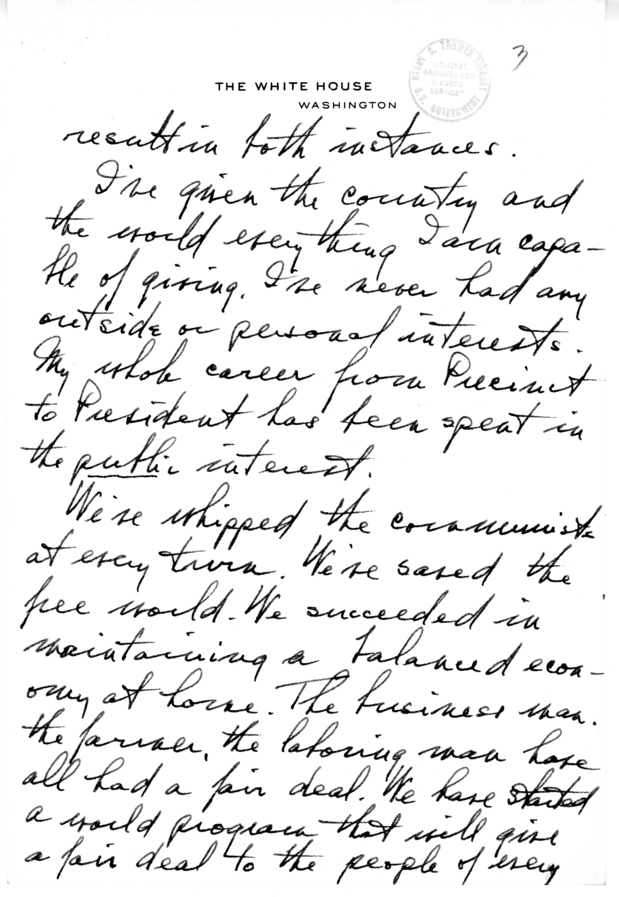 3
HARRY S. TRUMAN LIBRARY
NATIONAL
ARCHIVES AND
RECORDS
SERVICE
U.S. GOVERNMENT
THE WHITE HOUSE
WASHINGTON
result in both instances.
I've given the country and
the world everything I am capa-
ble of giving. I've never had any
outside or personal interests.
My whole career from Precinct
to President has been spent in
the public interest.
We've whipped the communists
at every turn. We've saved the
free world. We succeeded in
maintaining a balanced econ-
omy at home. The business man.
the farmer, the laboring man have
all had a fair deal. We have started
a world program that will give
a fair deal to the people of every